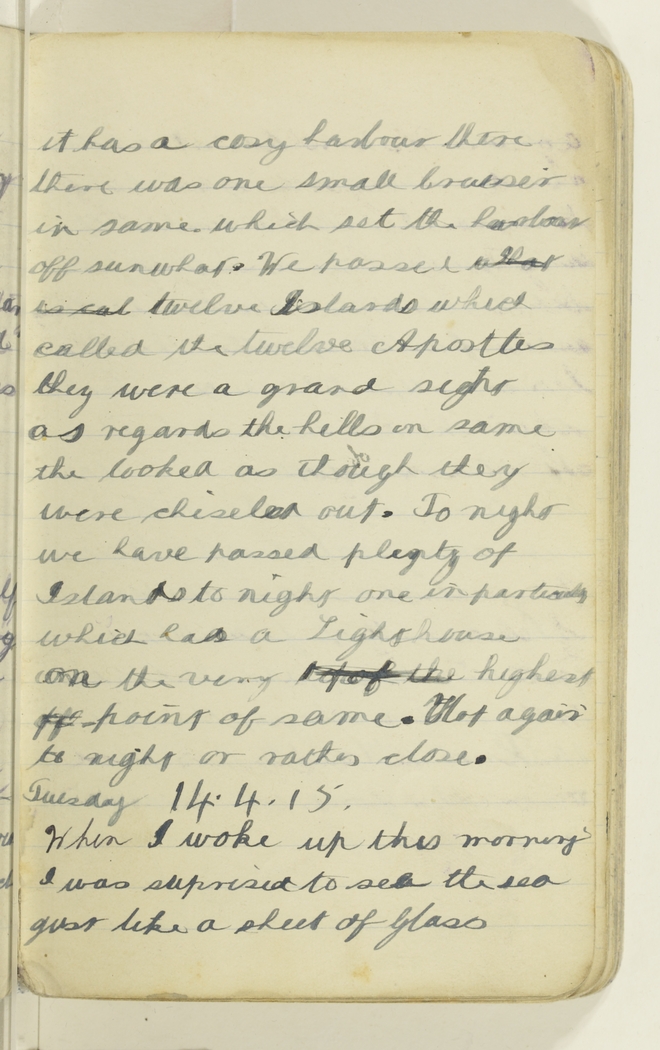 it has a cosy harbour there
there was one small cruiser
in same which set the harbour
off sumwhat. We passed what
is cal twelve Islands which
called the twelve Aposttes
they were a grand sight
as regards the hills on same
the looked as though they
were chiseled out. To night
we have passed plenty of
Islands to night one in particularly
which has a Lighthouse
on the very top of the highest
off point of same. Hot again
to night or rather close.
Tuesday 14.4.15.
When I woke up this morning
I was suprised to see the sea
gust like a sheet of Glass